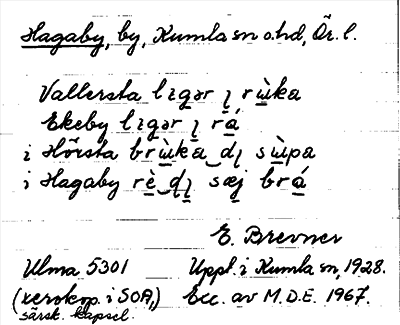 Hagaby, by, Kumla sn o. hd, Ör. l.
Vallersta lɪgər ı̨ rὺ̱ka
Ekeby lɪgər ı̨ rá̱
i Hörsta brὺ̱ka‿dı̨ sὺ̱pa
i Hagaby rè̱‿dı̨ sæj brá̱
E. Brevner
Ulma 5301 Uppt. i Kumla sn, 1928.
(xerokop. i SOA,) Exc. av M.D.E. 1967.
särsk. kapsel.